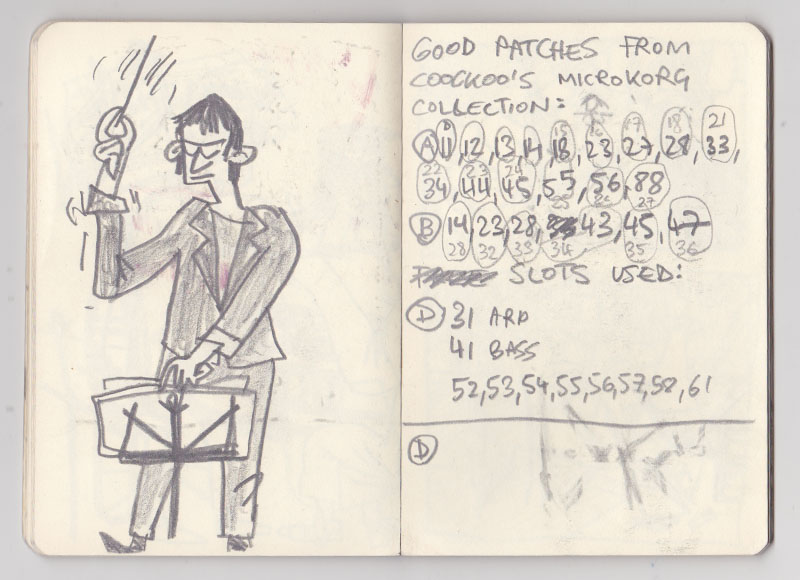 GOOD PATCHES FROM
COOCKOO'S MICROKORG
COLLECTION:
15 16 17 18 21
A 11, 12, 13, 14, 18, 23, 27, 28, 33,
22 23 24
34, 44, 45, 55, 56, 88
25 26 27
B 14, 23, 28, 43, 45, 47
28 32 33 34 35 36
SLOTS USED:
D 31 ARP
41 BASS
52,53,54,55,56,57,58,61
D